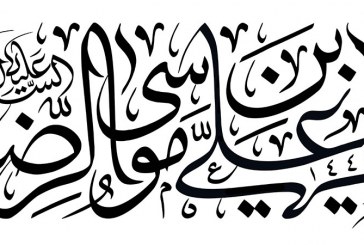 علیّ بن موسی الرضا علیه السلام